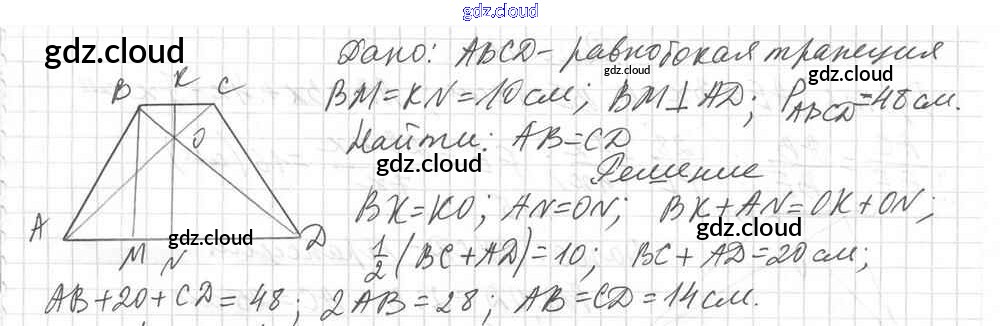 gdz.cloud
gdz.cloud
Дано: ABCD - равнобокая трапеция
gdz.cloud
gdz.cloud
BM=KN=10 см; BM⊥AD; P_ABCD=48 см.
B K C
O
Найти: AB=CD
gdz.cloud
Решение
BK=KO; AN=ON; BK+AN=OK+ON;
gdz.cloud
A M N D
gdz.cloud
1/2(BC+AD)=10; BC+AD=20 см;
AB+20+CD=48; 2AB=28; AB=CD=14 см.